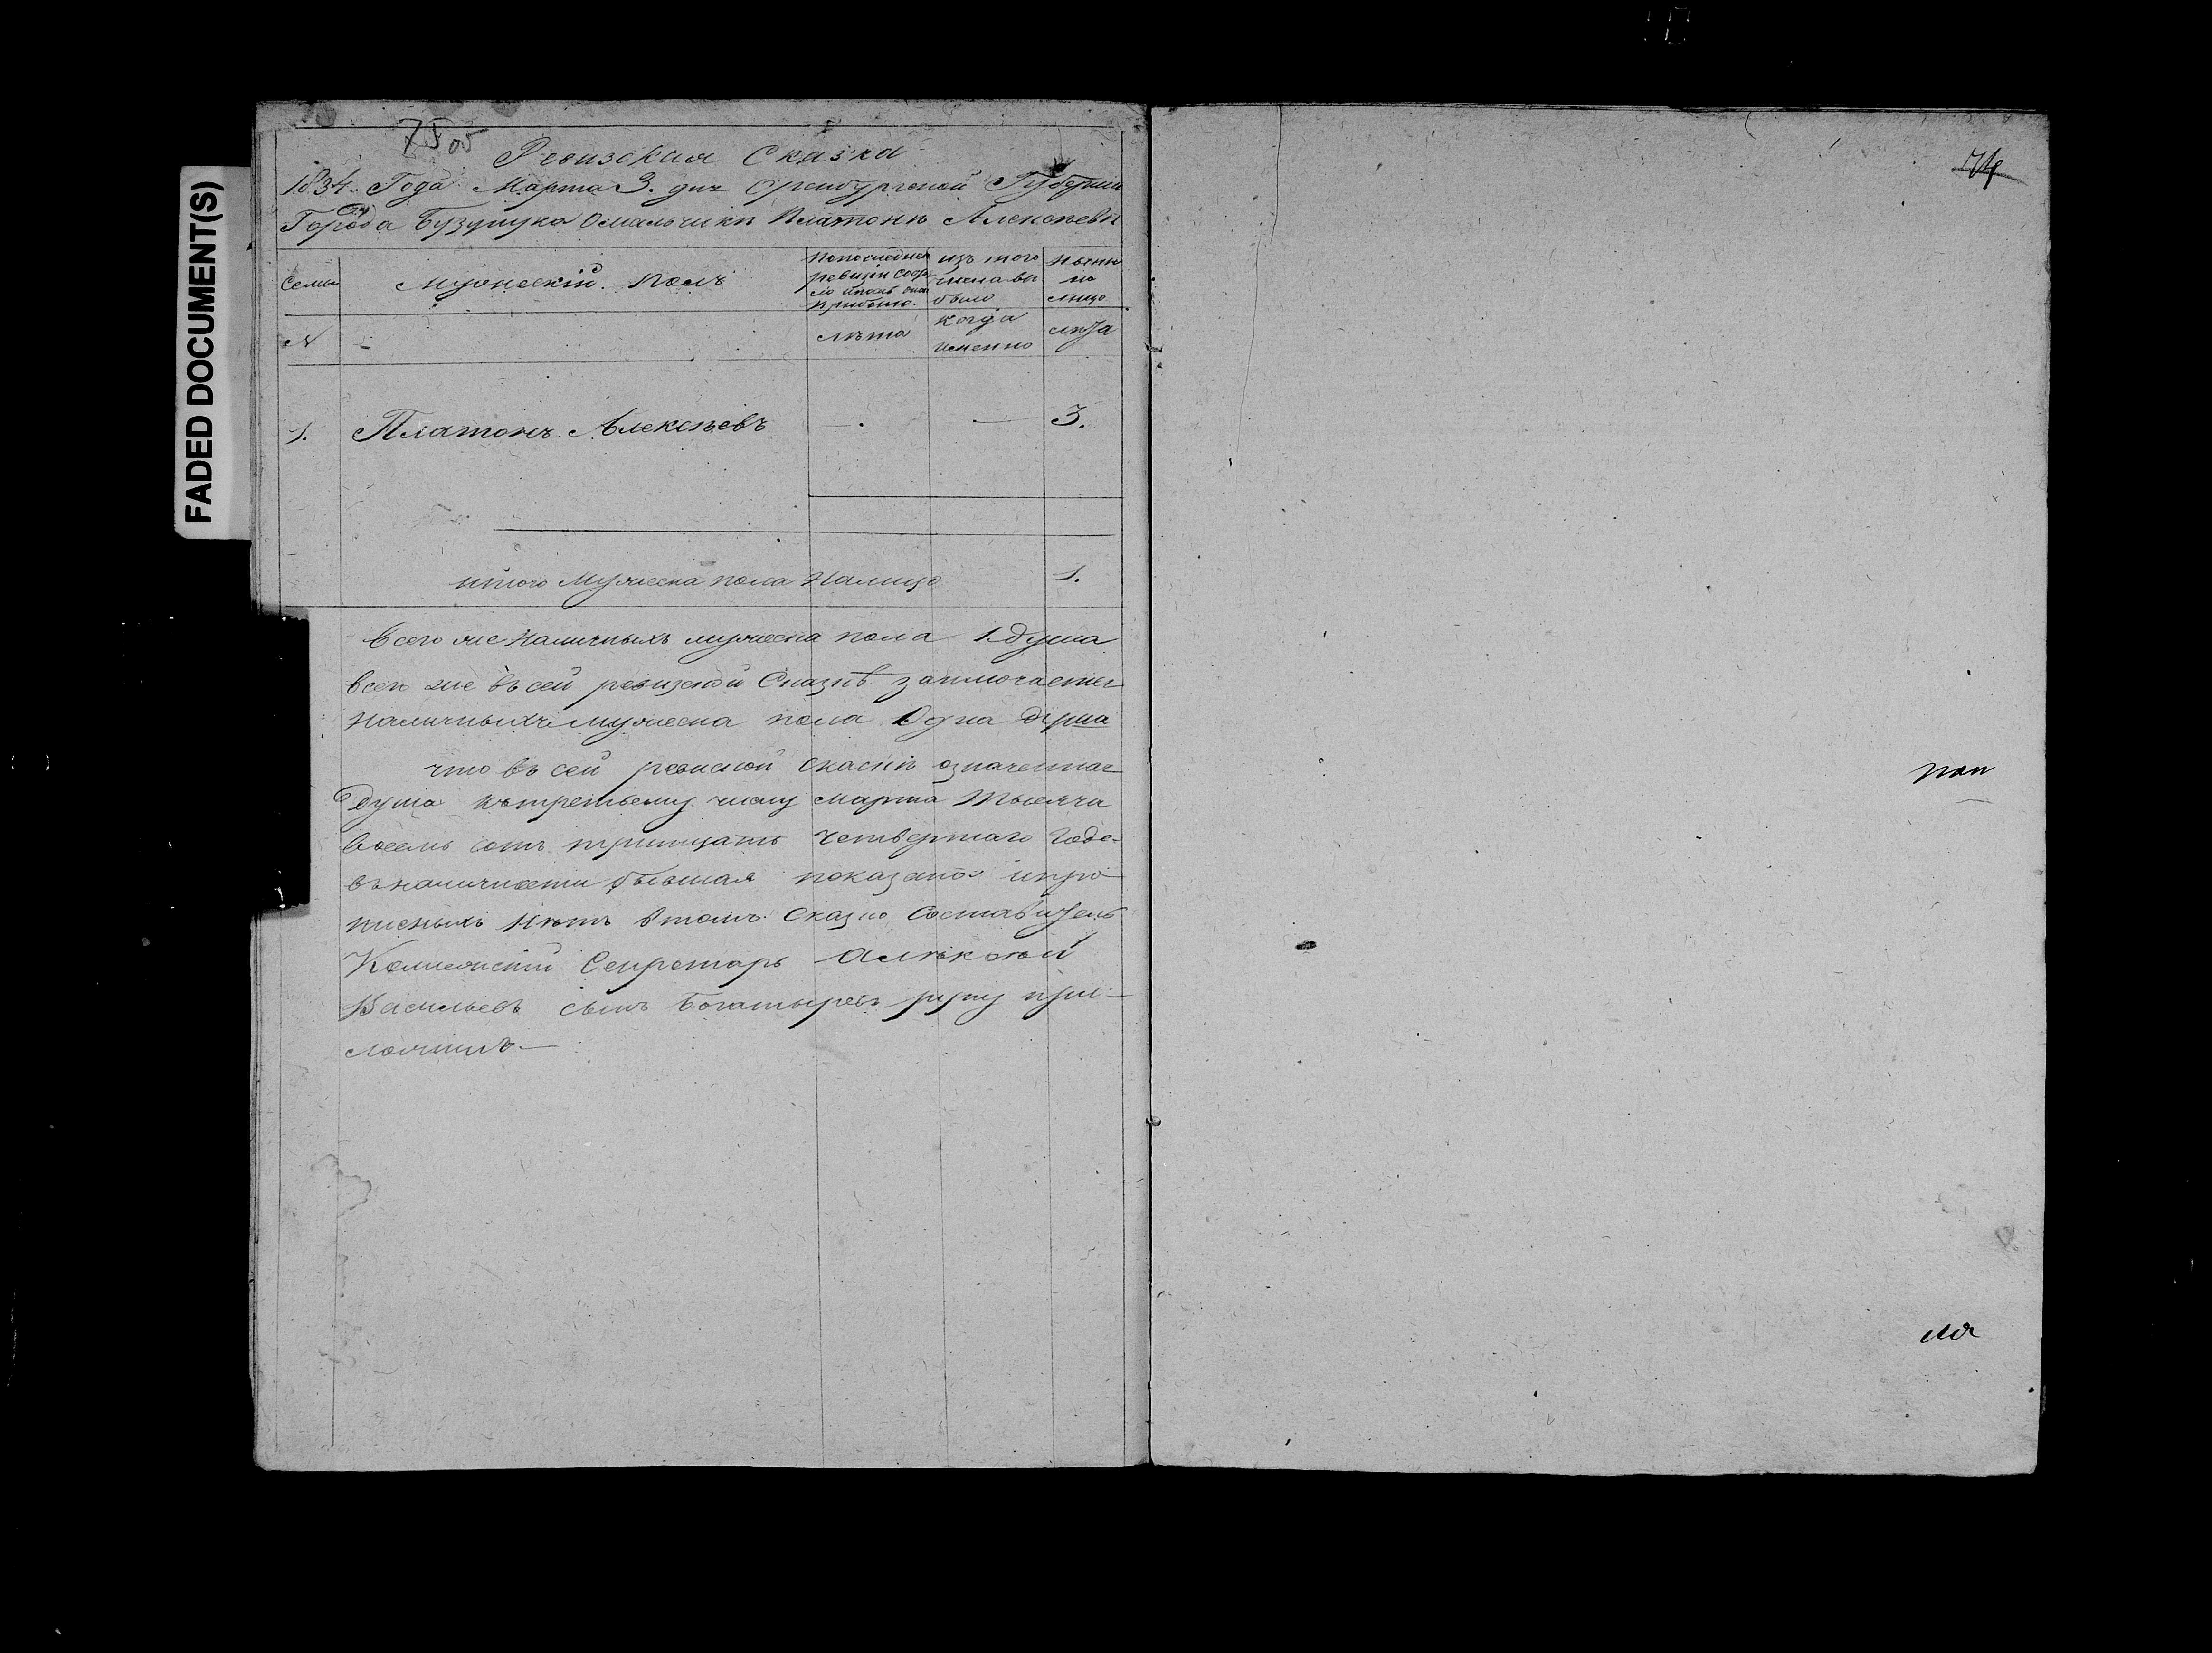 FADED DOCUMENT(S)
75 об
Ревизская Сказка
1834. Года Марта 3. дня Оренбургской Губернии
Города Бузулука Омальчике Платоне Алексееве
Семьи
Мужескій полъ
Попоследней ревизіи Состояло ипосле оной прибыло.
изъ того числа выбыло
Ныне на лицо
N
лета
когда именно
лета
1. Платонъ Алексеевъ — — 3.
итого Мужеска пола Налицо 1.
Всего же Наличныхъ мужеска пола 1 душа
всего же въ сей ревизской Сказкѣ заключается
Наличныхъ мужеска пола Одна душа
что въ сей ревиской скаске означенная
душа ктретьему числу марта тысяча
восемь сотъ тритцать четвертаго Года
вналичности бывшая показана ипро
писныхъ нетъ втомъ Сказко Составитель
Колежскій Секретарь Алѣксѣй
Васильевъ сынъ Богатыревъ руку при-
ложилъ—
74